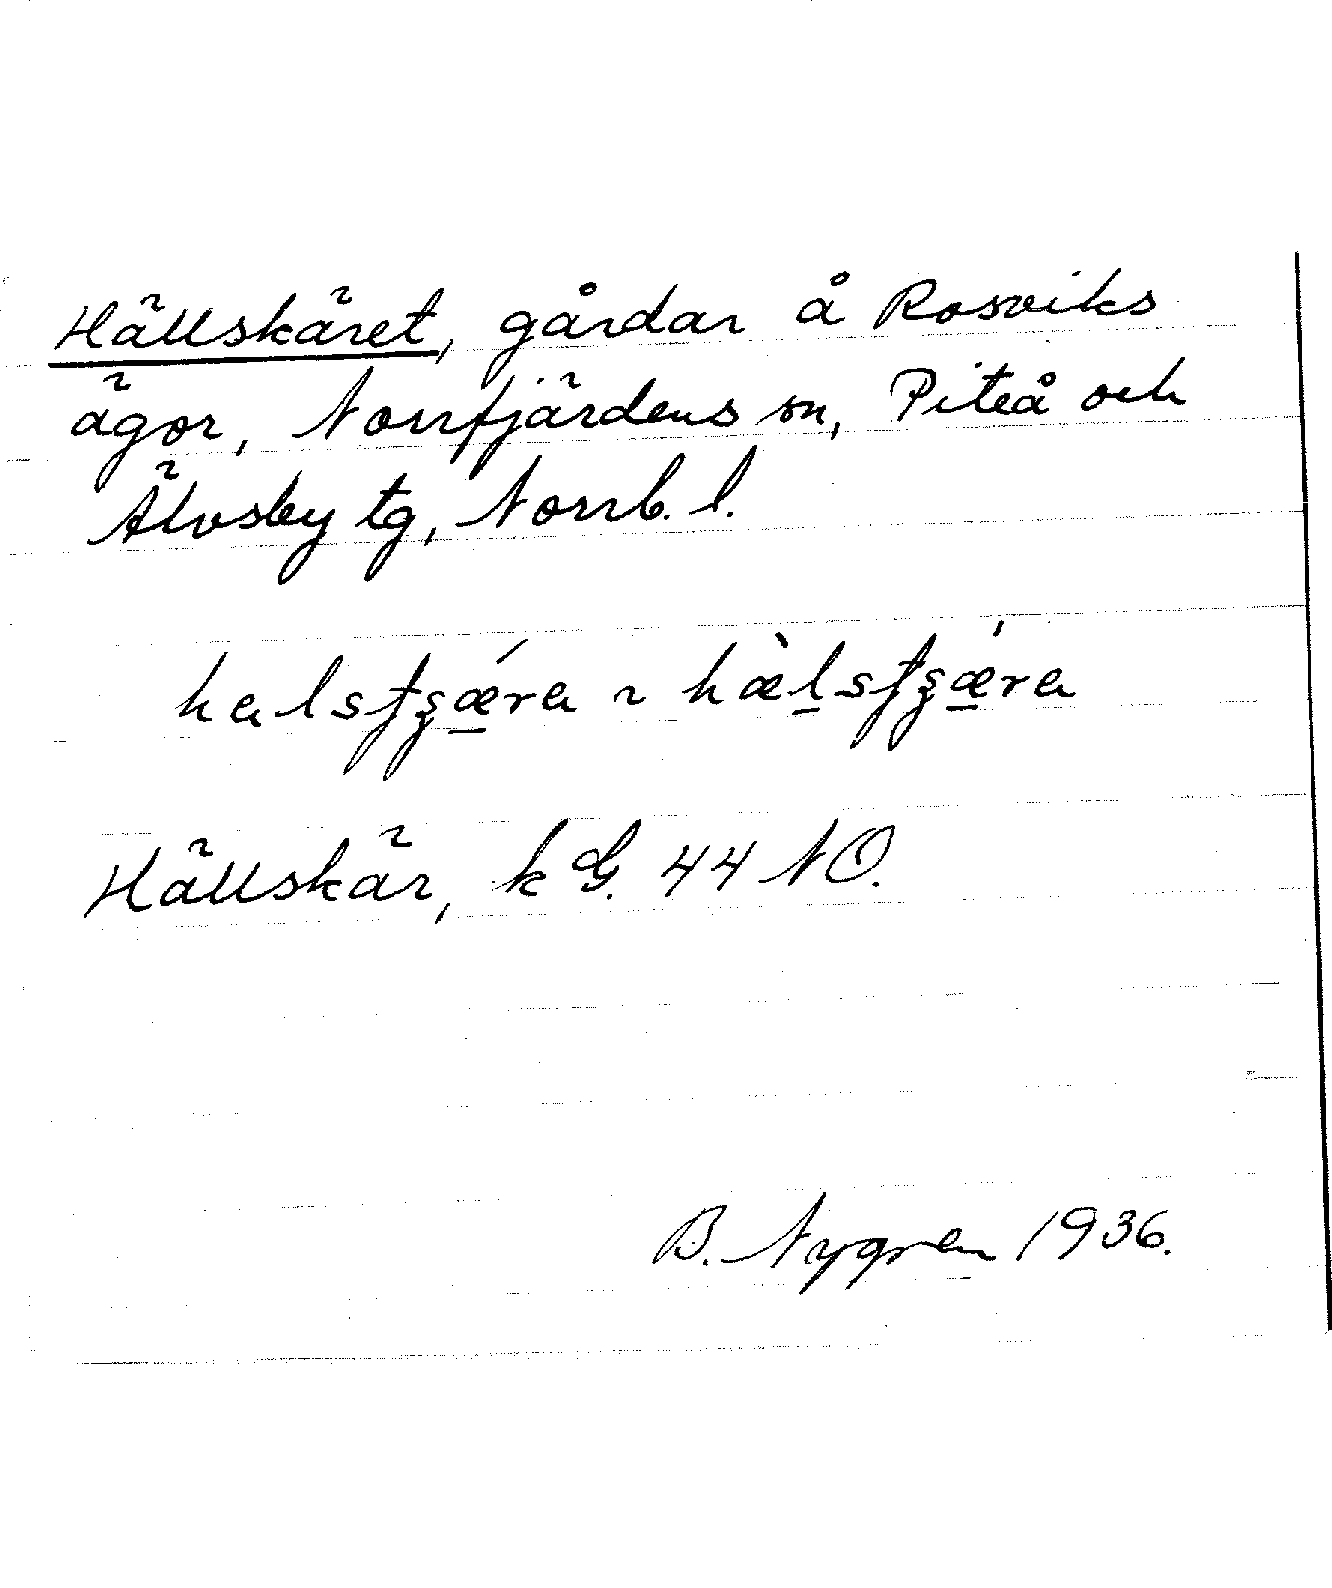 Hällskäret, gårdar å Rosviks
ägor, Norrfjärdens sn, Piteå och
Älvsby tg, Norrb. l.
halstʂǽra ~ hæ̀l̲stʂæ̲̍ra
Hällskär, k G. 44 NO.
B. Nygren 1936.